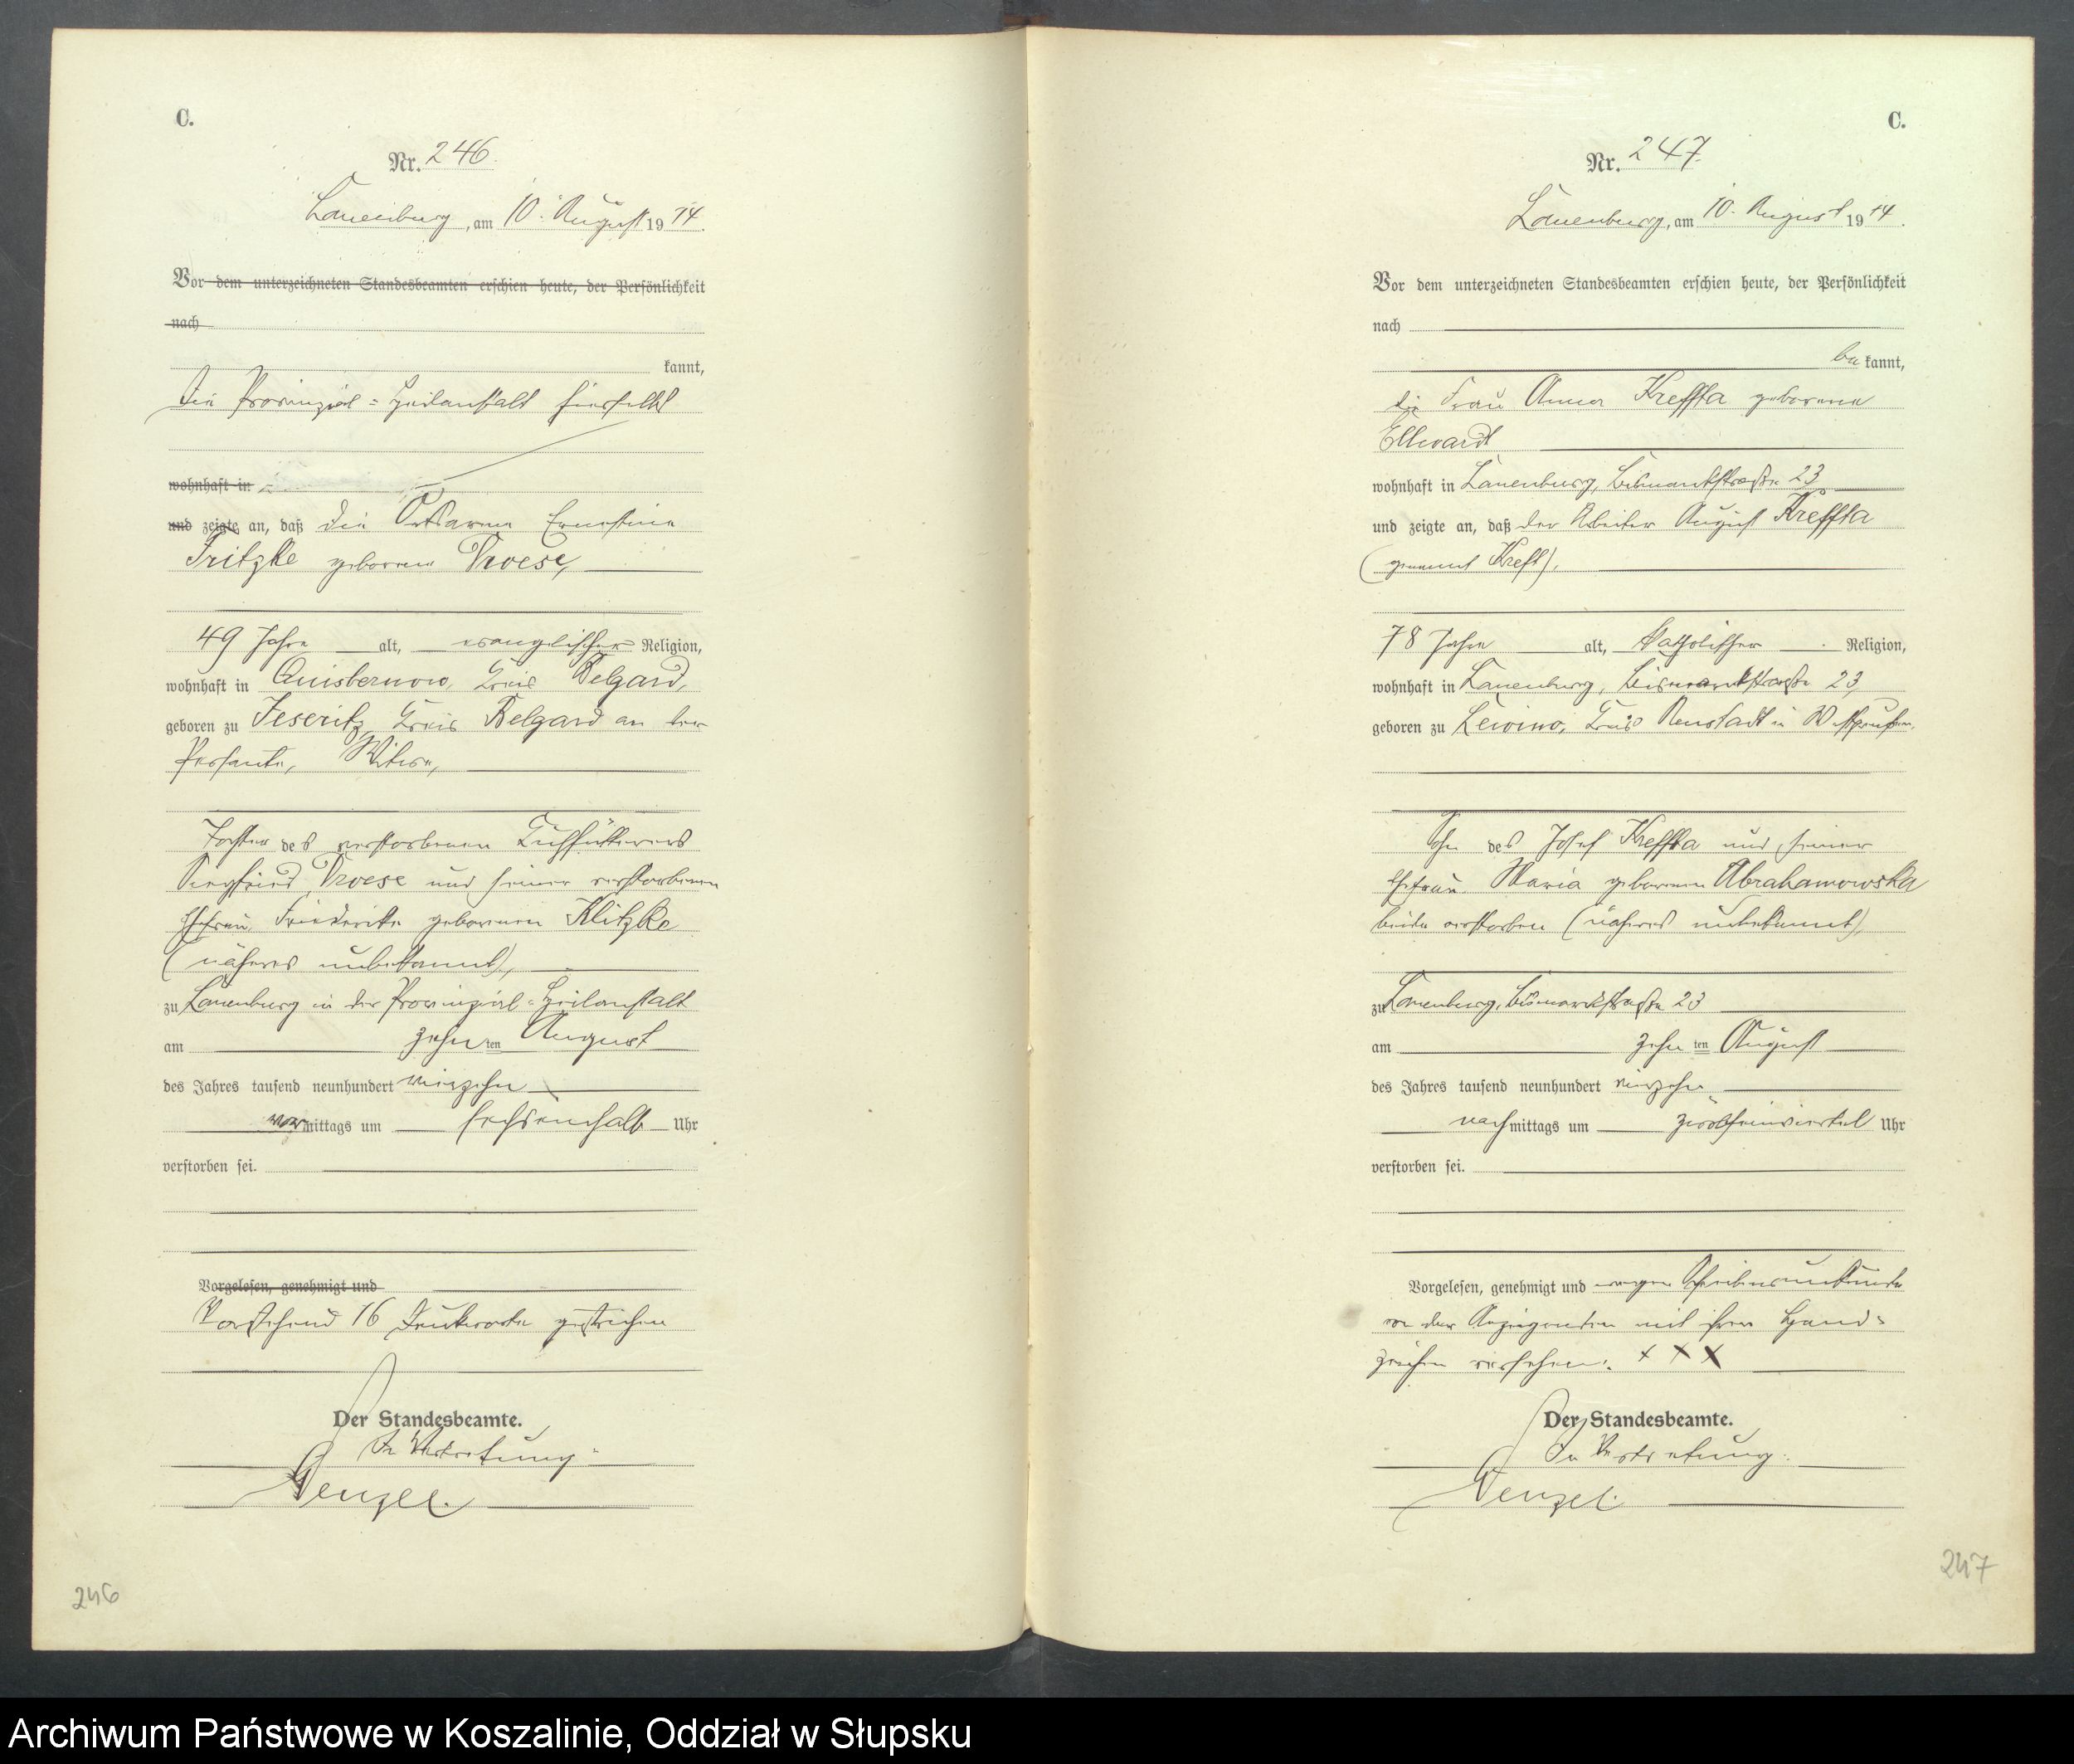 C.
Nr. 246.
Lauenburg, am 10. August 1914.
Vor dem unterzeichneten Standesbeamten erschien heute, der Persönlichkeit
nach
kannt,
Die Provinzial-Heilanstalt hierselbst
wohnhaft in
und zeigte an, daß die Ortsarme Ernestine
Fritzke geborene Troese,
49 Jahre alt, evangelischer Religion,
wohnhaft in Quisbernow, Kreis Belgard,
geboren zu Jeseritz, Kreis Belgard an der
Persante, Witwe,
Tochter des verstorbenen
Siegfried Troese und seiner verstorbenen
Ehefrau Friederike geborenen Klitzke
(näheres unbekannt),
zu Lauenburg in der Provinzial-Heilanstalt
am zehnten August
des Jahres tausend neunhundert vierzehn
vormittags um sechseinhalb Uhr
verstorben sei.
Vorgelesen, genehmigt und
Vorstehend 16 Druckworte gestrichen
Der Standesbeamte.
In Vertretung:
Wenzel.
246
C.
Nr. 247.
Lauenburg, am 10. August 1914.
Vor dem unterzeichneten Standesbeamten erschien heute, der Persönlichkeit
nach
bekannt,
die Frau Anna Kreffta geborene
Ellwardt
wohnhaft in Lauenburg, Bismarckstraße 23
und zeigte an, daß der Arbeiter August Kreffta
(genannt Kreft),
78 Jahre alt, katholischer Religion,
wohnhaft in Lauenburg, Bismarckstraße 23,
geboren zu Lewino, Kreis Neustadt in Westpreußen,
Sohn des Josef Kreffta und seiner
Ehefrau Maria geborenen Abrahamowska
beide verstorben (näheres unbekannt),
zu Lauenburg, Bismarckstraße 23
am zehnten August
des Jahres tausend neunhundert vierzehn
nachmittags um zwölfeinviertel Uhr
verstorben sei.
Vorgelesen, genehmigt und wegen Schreibensunkunde
von der Anzeigenden mit ihrem Hand-
zeichen versehen: + X X
Der Standesbeamte.
In Vertretung:
Wenzel.
247
Archiwum Państwowe w Koszalinie, Oddział w Słupsku